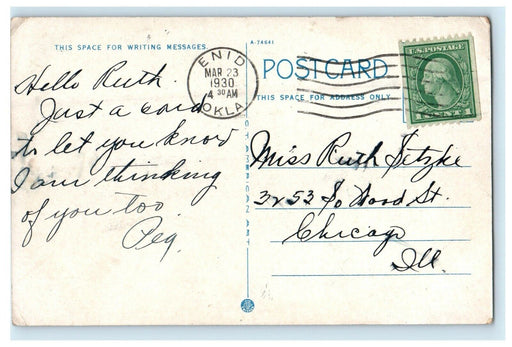 THIS SPACE FOR WRITING MESSAGES.
Hello Ruth.
Just a card
to let you know
I am thinking
of you too.
Peg.
A-74641
ENID
MAR 23
1930
4 30 AM
OKLA.
POSTCARD
THIS SPACE FOR ADDRESS ONLY.
U.S. POSTAGE
1 CENT 1
Miss Ruth Setzke
3253 So Wood St.
Chicago
Ill.